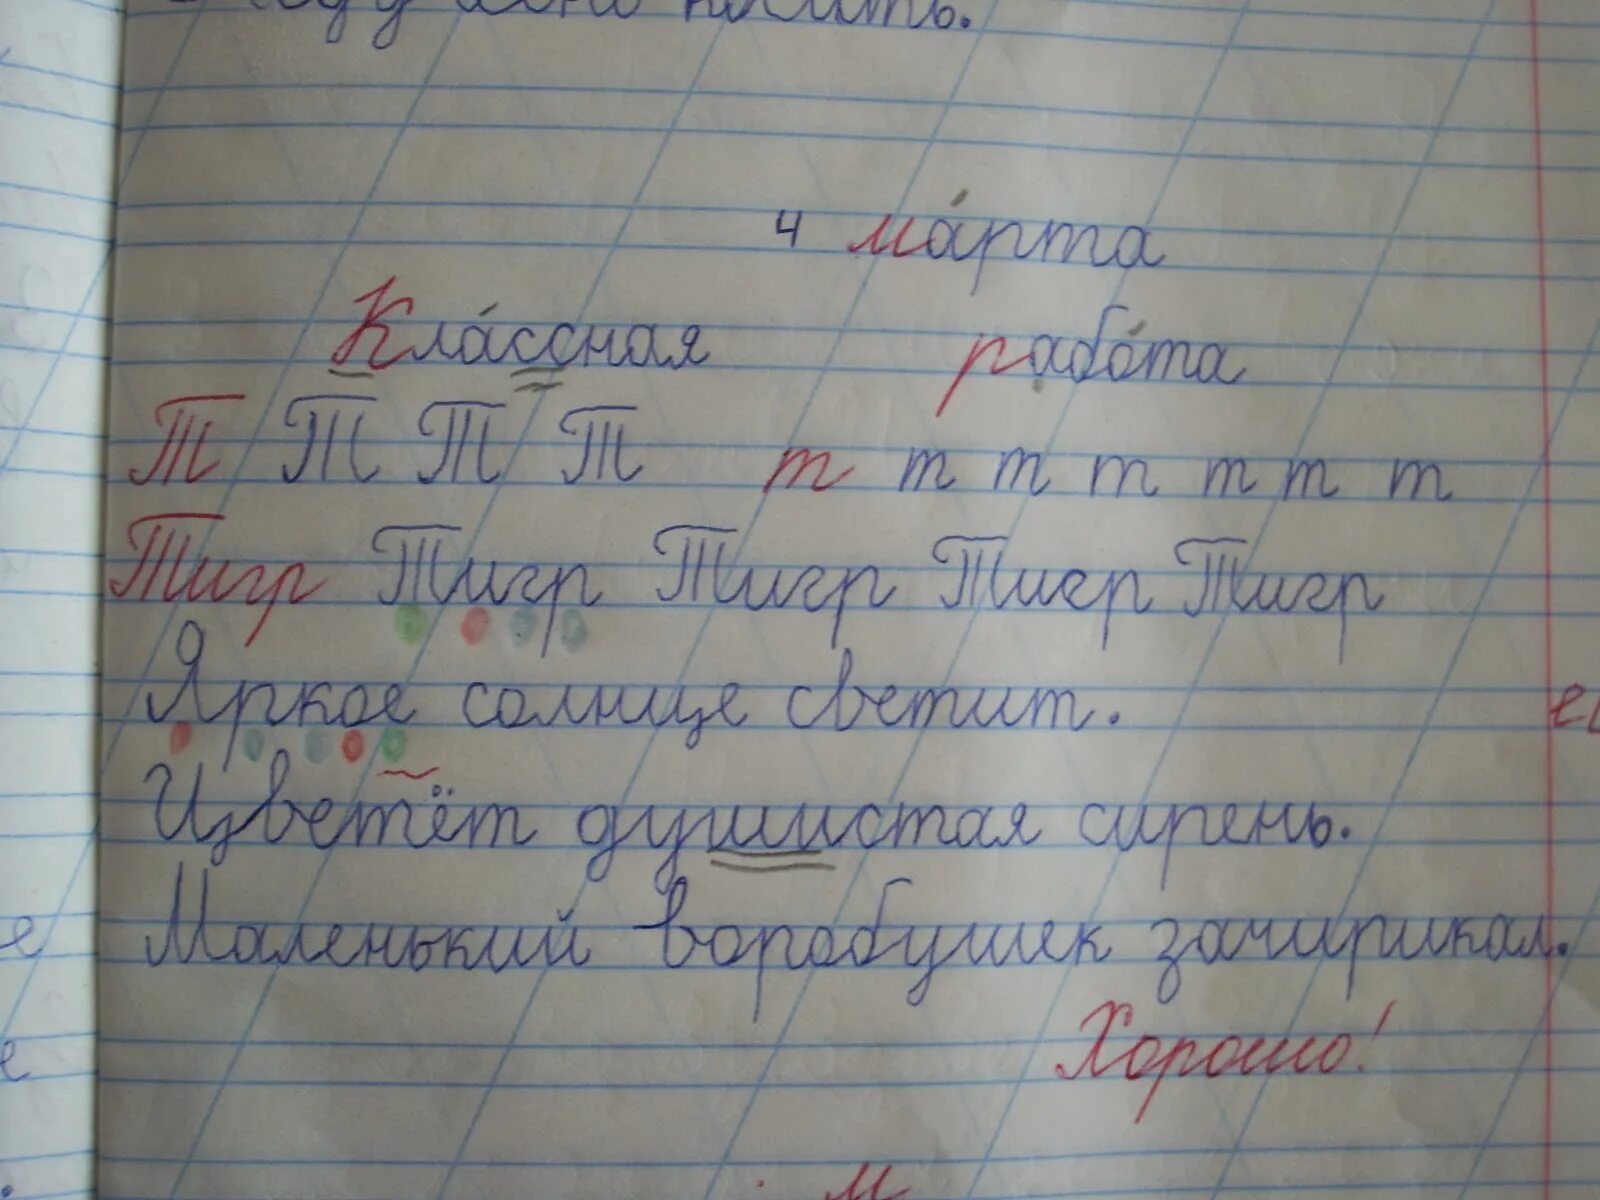 4 марта
Классная работа
Т Т Т Т т т т т т т т
Тигр Тигр Тигр Тигр Тигр
Яркое солнце светит.
Цветёт душистая сирень.
Маленький воробушек зачирикал.
Хорошо!
м